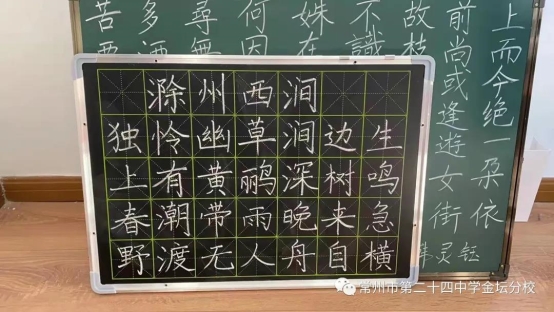 上而今绝一朵依
前尚或逢遊女街
故枝
不識
姝在
何因
尋無
多
苦
灵钰
滁州西涧
独怜幽草涧边生
上有黄鹂深树鸣
春潮带雨晚来急
野渡无人舟自横
常州市第二十四中学金坛分校